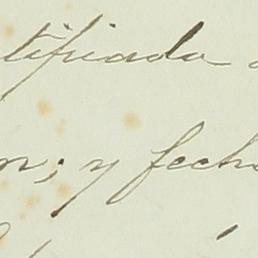 tificada
n; y fech